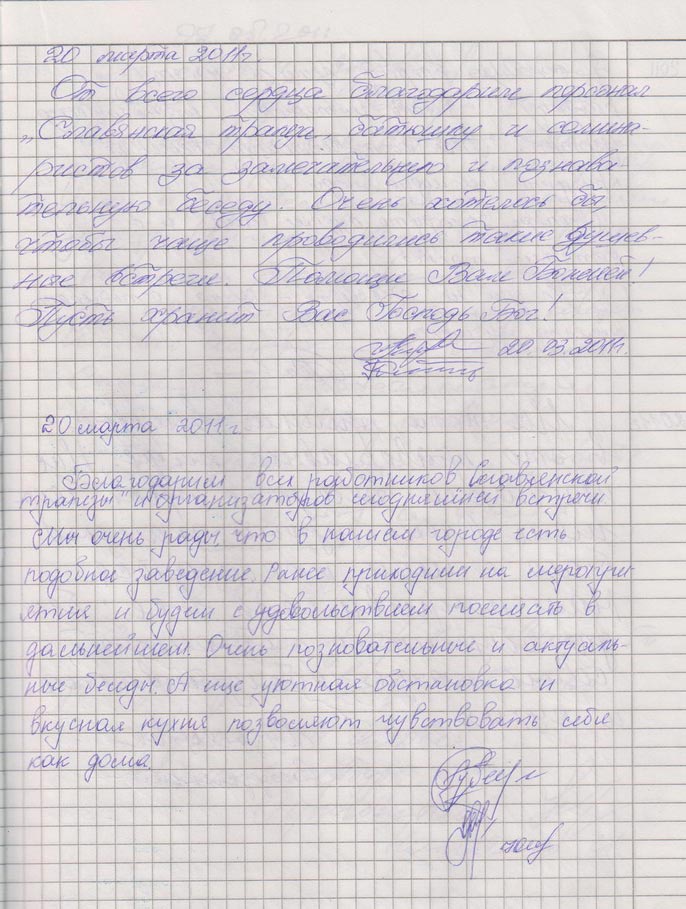 20 марта 2011г.
От всего сердца благодарим персонал
„Славянская трапеза, батюшку и семина-
ристов за замечательную и познава-
тельную беседу. Очень хотелось бы
чтобы чаще проводились такие душев-
ные встречи. Помощи Вам Божией!
Пусть хранит Вас Господь Бог!
20.03.2011г.
20 марта 2011г
Благодарим всех работников Славянской
трапезы" и организаторов сегодняшней встречи
Мы очень рады, что в нашем городе есть
подобное заведение. Ранее приходили на меропри-
ятие и будем с удовольствием посещать в
дальнейшем. Очень позновательные и актуаль-
ные беседы. А еще уютная обстановка и
вкусная кухня позволяют чувствовать себя
как дома.